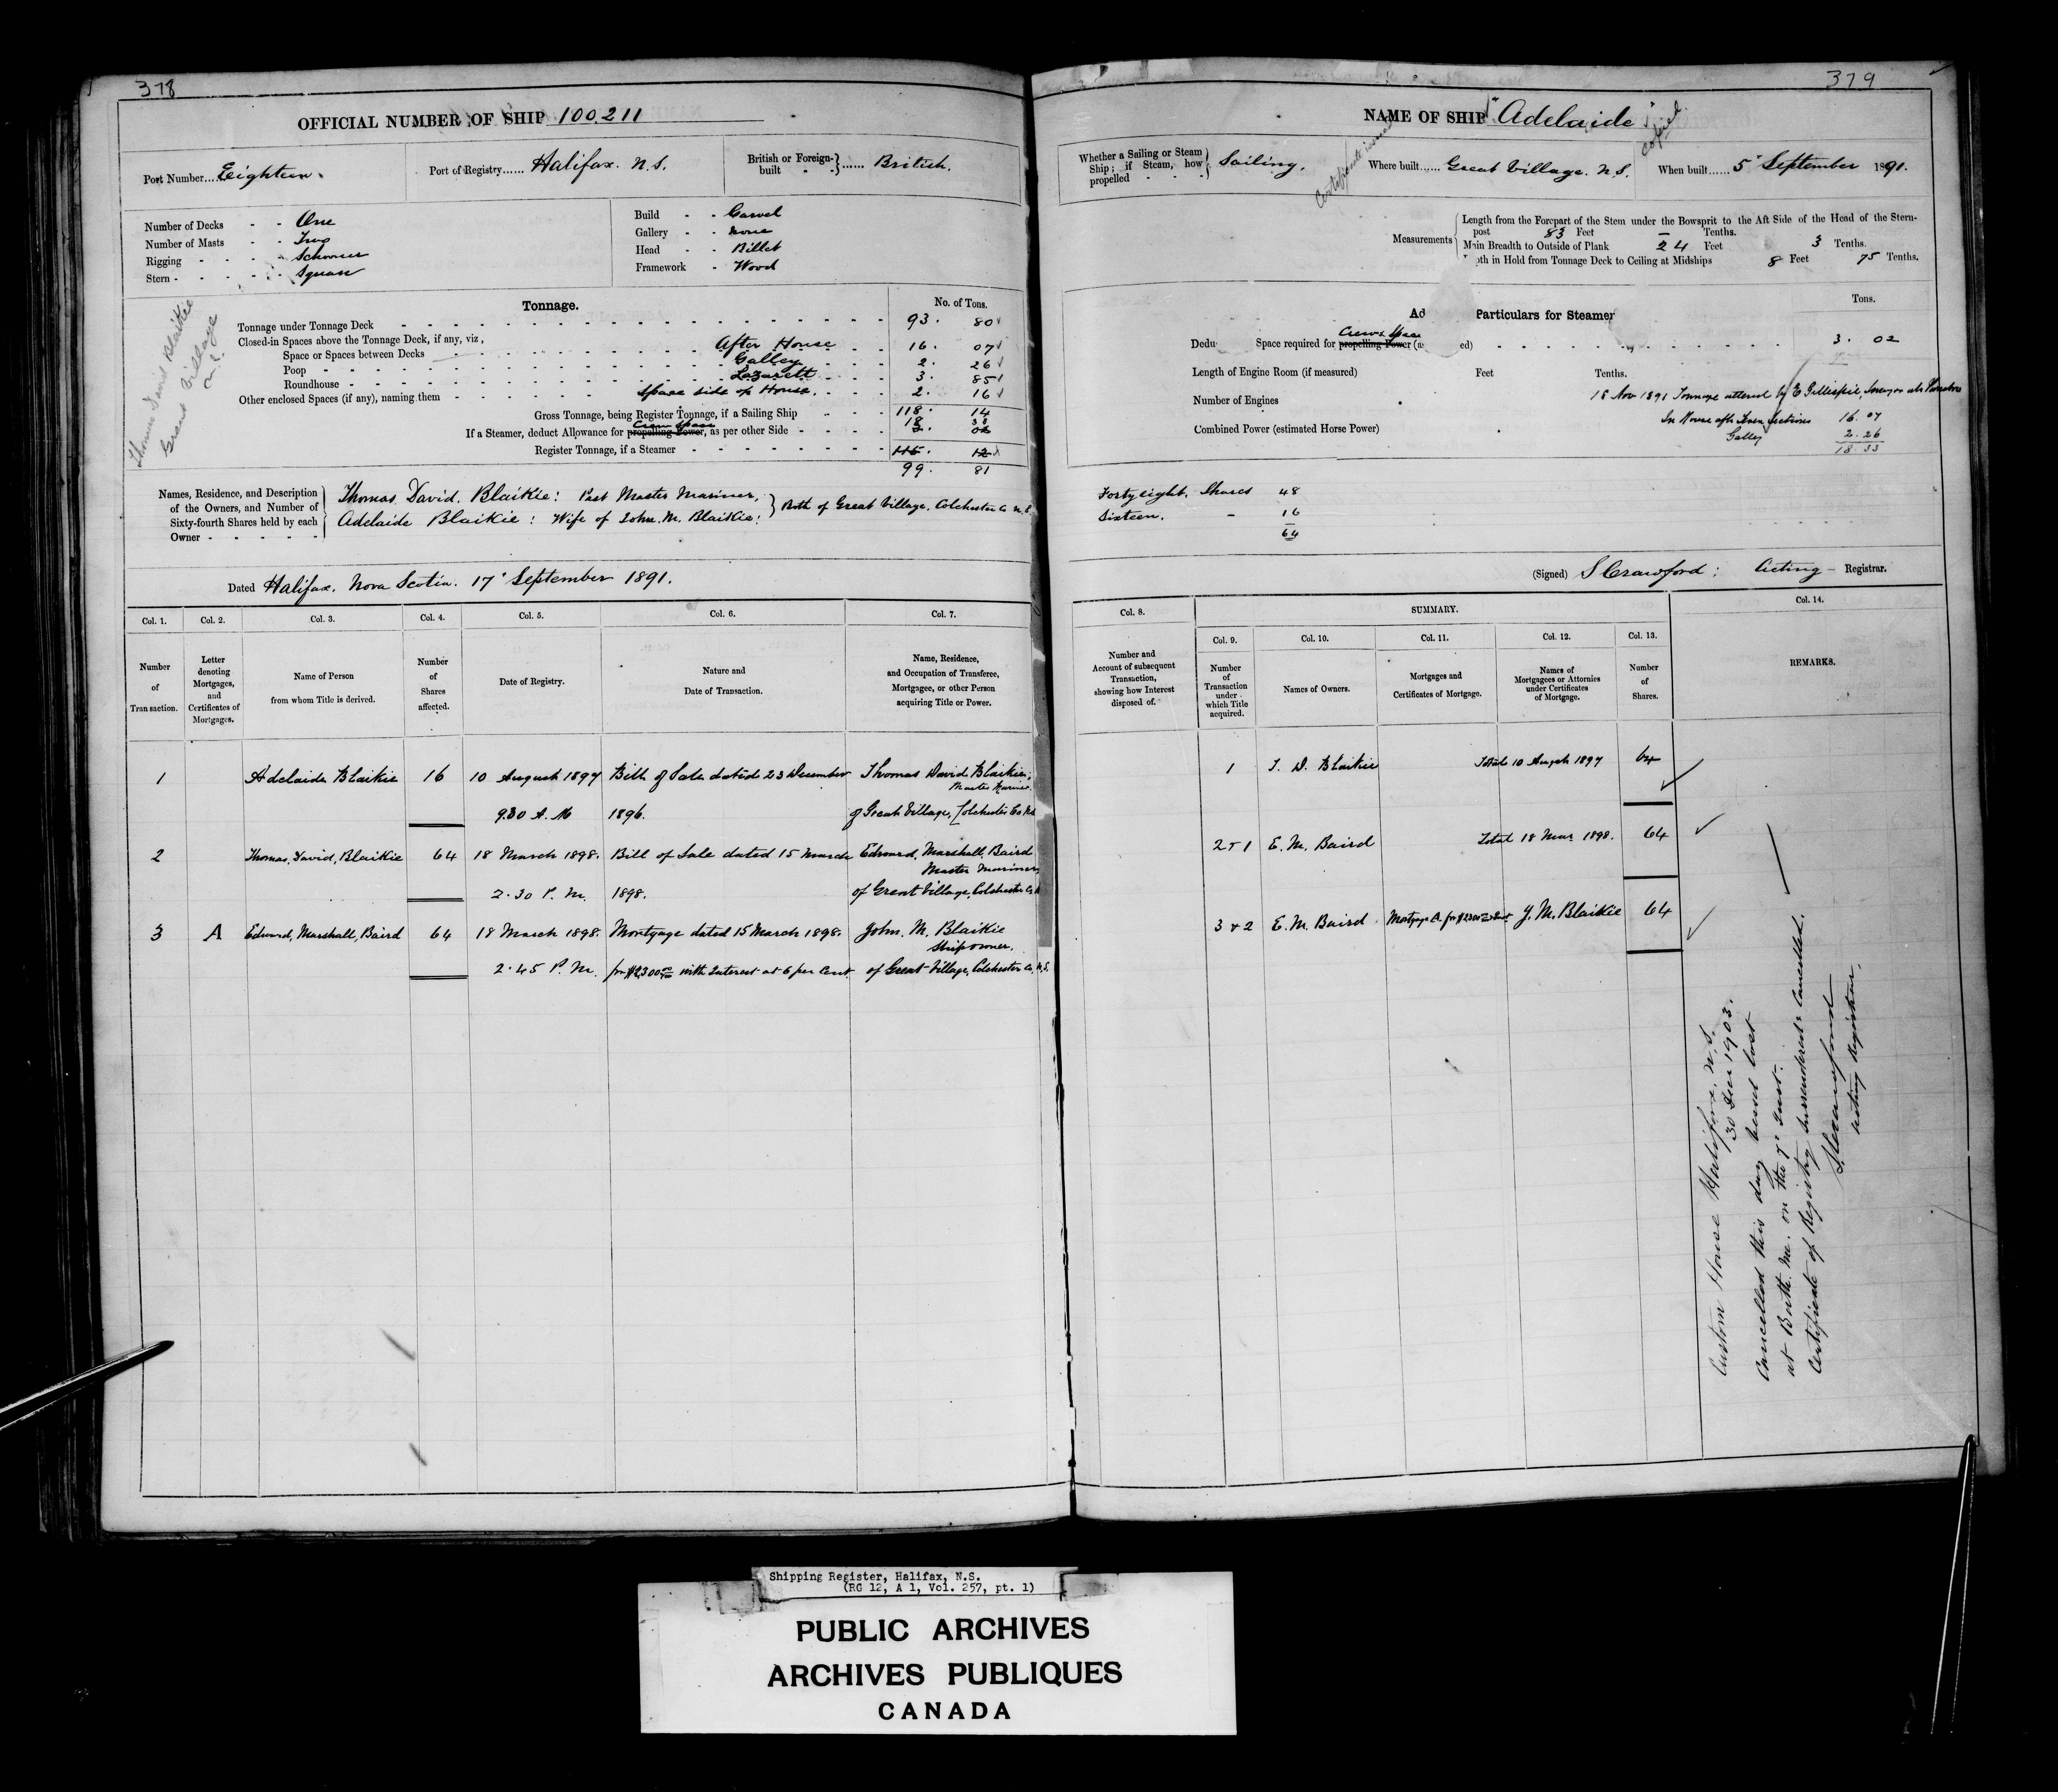 378
OFFICIAL NUMBER OF SHIP 100,211
Port Number....Eighteen.
Port of Registry...... Halifax. N.S.
British or Foreign-built ...... British.
Number of Decks - - One
Number of Masts - - Two
Rigging - - - - Schooner
Stern - - - - Square
Build - - Carvel
Gallery - - None
Head - - Billet
Framework - Wood
Thomas David Blaikie
Great Village
N.S.
Tonnage.
No. of Tons.
Tonnage under Tonnage Deck 93. 80
Closed-in Spaces above the Tonnage Deck, if any, viz,
Space or Spaces between Decks After House 16. 07
Poop Galley 2. 26
Roundhouse Lazarett 3. 85
Other enclosed Spaces (if any), naming them Space side of House. 2. 16
Gross Tonnage, being Register Tonnage, if a Sailing Ship 118. 14
Crew Space
If a Steamer, deduct Allowance for propelling Power, as per other Side 18. 33
3. 02
Register Tonnage, if a Steamer 115. 12
99. 81
Names, Residence, and Description of the Owners, and Number of Sixty-fourth Shares held by each Owner
Thomas, David, Blaikie: Past Master Mariner,
Adelaide Blaikie: Wife of John. M. Blaikie: } Both of Great Village. Colchester Co N.S.
Dated Halifax. Nova Scotia. 17' September 1891.
Col. 1. Col. 2. Col. 3. Col. 4. Col. 5. Col. 6. Col. 7.
Number of Transaction.
Letter denoting Mortgages, and Certificates of Mortgages.
Name of Person from whom Title is derived.
Number of Shares affected.
Date of Registry.
Nature and Date of Transaction.
Name, Residence, and Occupation of Transferee, Mortgagee, or other Person acquiring Title or Power.
1 Adelaide Blaikie 16 10 August 1897 Bill of Sale dated 23 December Thomas David Blaikie,
Master Mariner.
9.30 A. M 1896. of Great Village, Colchester Co N.S.
2 Thomas, David, Blaikie 64 18 March 1898. Bill of Sale dated 15 March Edward, Marshall, Baird
Master Mariner,
2.30 P. M. 1898. of Great Village, Colchester Co. N
3 A Edward, Marshall, Baird 64 18 March 1898. Mortgage dated 15 March 1898. John. M. Blaikie
Ship owner.
2.45 P. M. for $2300 with Interest at 6 per Cent. of Great Village, Colchester Co. N.S.
379
NAME OF SHIP "Adelaide"
copied
Certificate issued
Whether a Sailing or Steam Ship; if Steam, how propelled Sailing.
Where built...... Great Village. N.S.
When built...... 5' September 1891.
Measurements
Length from the Forepart of the Stem under the Bowsprit to the Aft Side of the Head of the Stern-
post 83 Feet — Tenths.
Main Breadth to Outside of Plank 24 Feet 3 Tenths.
pth in Hold from Tonnage Deck to Ceiling at Midships 8 Feet 75 Tenths.
Ad Particulars for Steamer
Tons.
Crews Space
Dedu Space required for propelling Power (a ed) 3. 02
Length of Engine Room (if measured) Feet Tenths.
18 Nov 1891 Tonnage altered by E Gillespie, Surveyor
Number of Engines
In House after Seven Sections 16. 07
Combined Power (estimated Horse Power)
Galley 2. 26
18 33
Forty eight. Shares 48
Sixteen. - 16
64
(Signed) S Crawford: Acting - Registrar.
Col. 8. SUMMARY. Col. 14.
Col. 9. Col. 10. Col. 11. Col. 12. Col. 13.
Number and Account of subsequent Transaction, showing how Interest disposed of.
Number of Transaction under which Title acquired.
Names of Owners.
Mortgages and Certificates of Mortgage.
Names of Mortgagees or Attornies under Certificates of Mortgage.
Number of Shares.
REMARKS.
1 T. D. Blaikie Total 10 August 1897 64
2 & 1 E. M. Baird Total 18 Mar 1898. 64
3 & 2 E. M. Baird Mortgage A. for $2300 J. M. Blaikie 64
Custom House Halifax. N.S.
30 Decr 1903.
Cancelled this day vessel lost
at Booth. Me. on the 7' Inst.
Certificate of Registry surrendered & Cancelled.
S. Crawford
Acting Registrar.
Shipping Register, Halifax, N.S.
(RG 12, A 1, Vol. 257, pt. 1)
PUBLIC ARCHIVES
ARCHIVES PUBLIQUES
CANADA